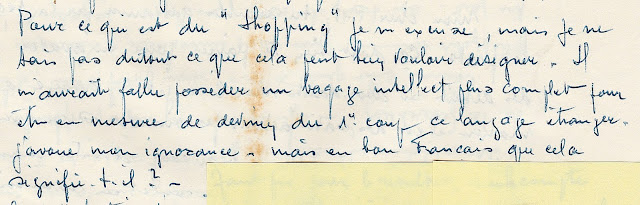 Pour ce qui est du "shopping" je m'excuse, mais je ne
sais pas du tout ce que cela peut bien vouloir désigner. Il
m'aurait fallu posseder un bagage intellect plus complet pour
être en mesure de deviner du 1er coup ce langage étranger.
J'avoue mon ignorance. mais en bon Francais que cela
signifie-t-il? -